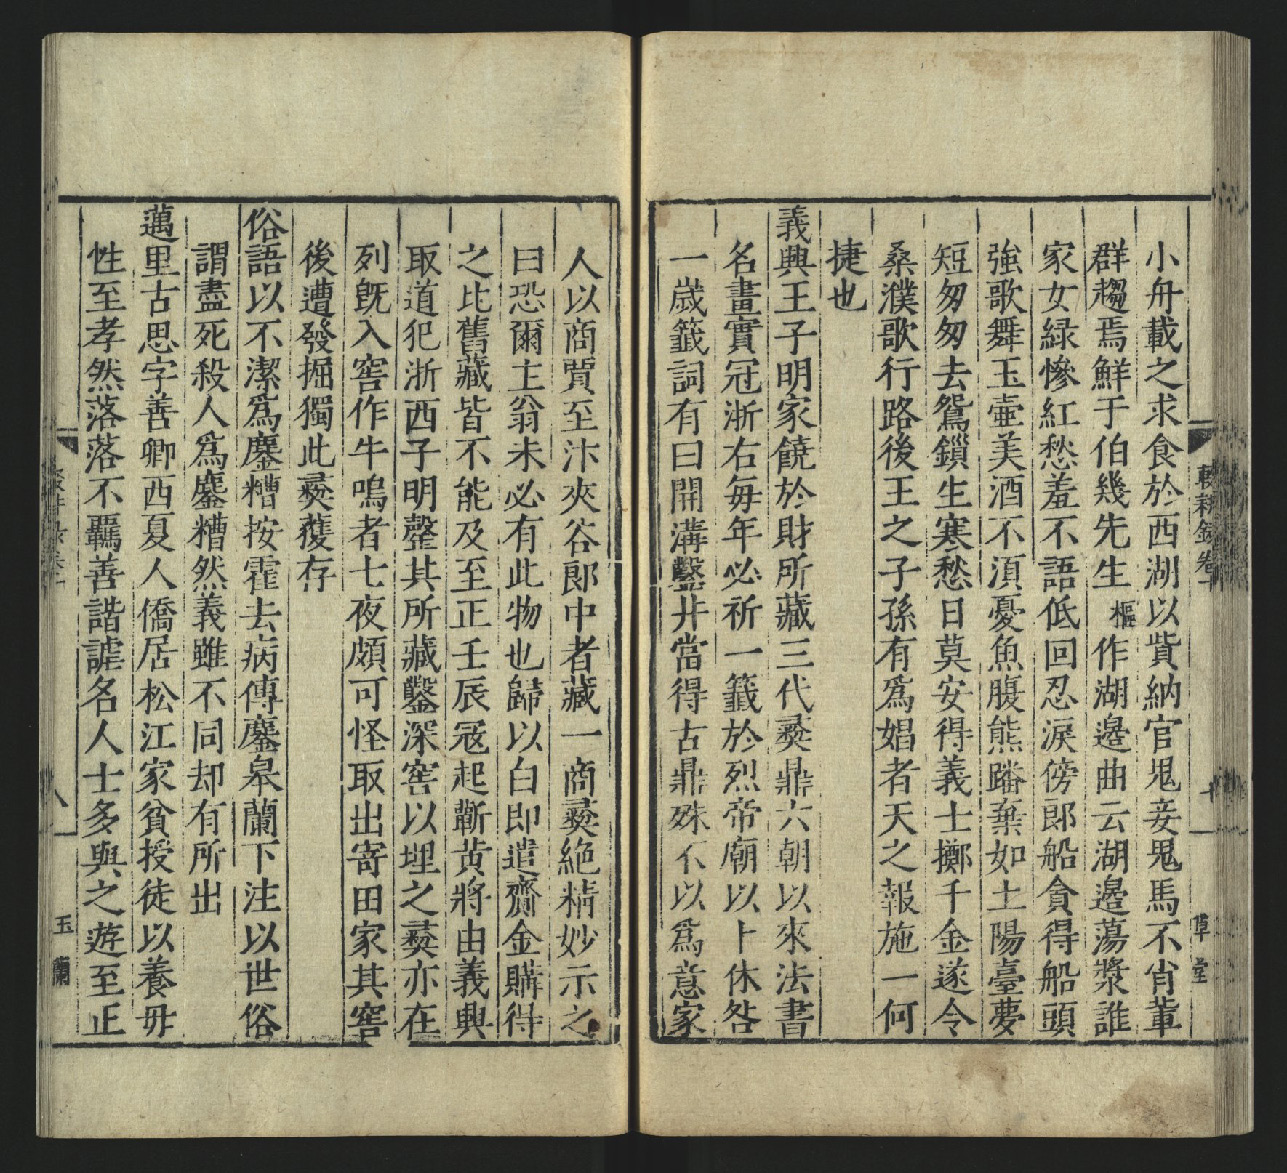 小舟載之求食於西湖以貲納官鬼妾鬼馬不肖輩
群趨焉鮮于伯幾先生樞作湖邊曲云湖邊蕩漿誰
家女綠慘紅愁羞不語低回忍淚傍郎船貪得船頭
強歌舞玉壷美酒不湏憂魚腹熊蹯棄如土陽臺夢
短匆匆去鴛鎻生寒愁日莫安得義士擲千金遂令
桑濮歌行路後王之子孫有爲娼者天之報施一何
捷也
義興王子明家饒於財所藏三代彛鼎六朝以來法書
名畫實冠浙右每年必祈一籤於烈帝廟以卜休咎
一歲籤詞有曰開溝鑿井當得古鼎殊不以爲意家
人以商賈至汴夾谷郎中者藏一商彛絶精妙示之
曰恐爾主翁未必有此物也歸以白即遣齎金購得
之比舊藏皆不能及至正壬辰冦起蘄黄將由義興
取道犯浙西子明罄其所藏鑿深窖以埋之彛亦在
列旣入窖作牛鳴者七夜頗可怪取出寄田家其窖
後遭發掘獨此彛獲存
俗語以不潔爲鏖糟按霍去病傳鏖皋蘭下注以世俗
謂盡死殺人爲鏖糟然義雖不同却有所出
邁里古思字善卿西夏人僑居松江家貧授徒以養毋
性至孝然落落不羈善諧謔名人士多與之遊至正
輟耕錄卷十
草堂
八
玉蘭